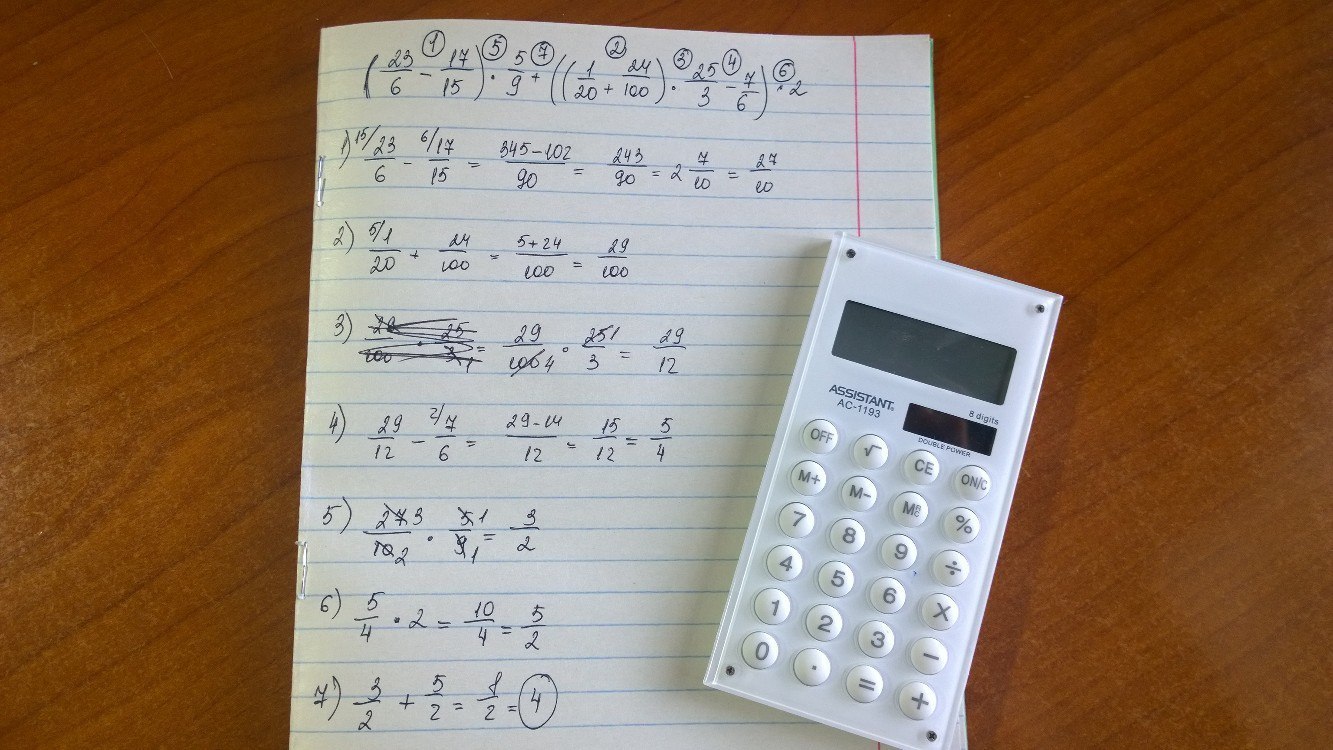 (23/6 - 17/15) · 5/9 + ((1/20 + 24/100) · 25/3 - 7/6) · 2
① ⑤ ⑦ ② ③ ④ ⑥
1) 15/ 23/6 - 6/ 17/15 = 345-102/90 = 243/90 = 2 7/10 = 27/10
2) 5/ 1/20 + 24/100 = 5+24/100 = 29/100
3) = 29/100 4 · 25 1/3 = 29/12
4) 29/12 - 2/ 7/6 = 29-14/12 = 15/12 = 5/4
5) 27 3/10 2 · 5 1/9 1 = 3/2
6) 5/4 · 2 = 10/4 = 5/2
7) 3/2 + 5/2 = 8/2 = 4
ASSISTANT
AC-1193
8 digits
DOUBLE POWER
OFF √ CE ON/C
M+ M- MRC %
7 8 9 ÷
4 5 6 X
1 2 3 −
0 · = +